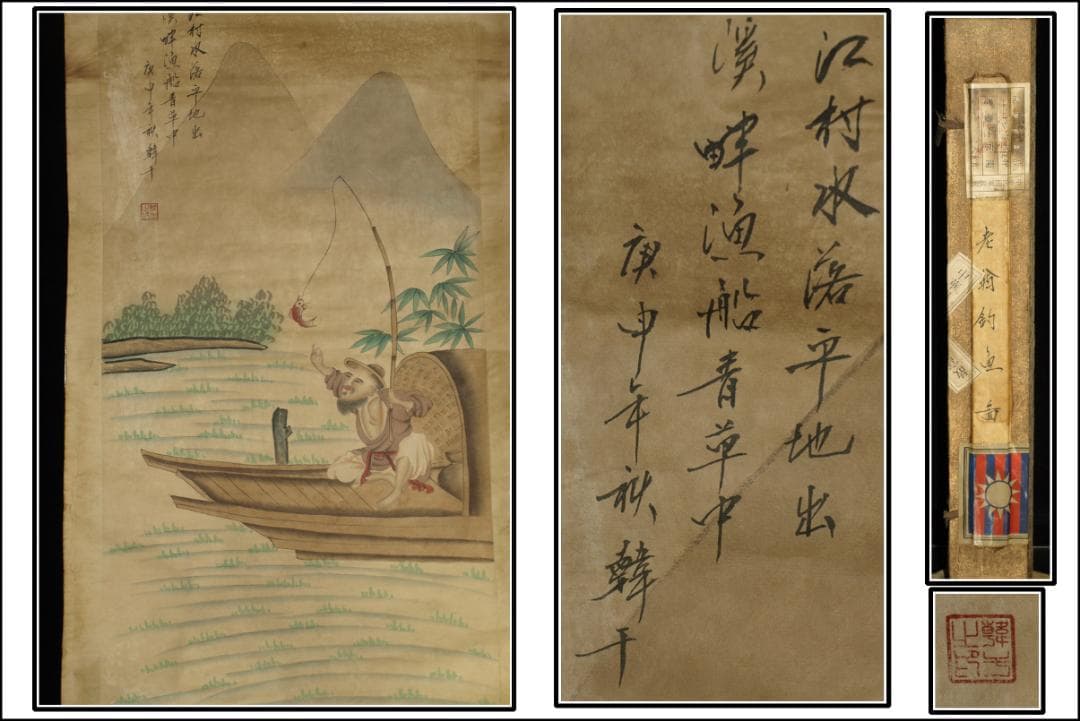 江村水落平地出
溪畔漁船青草中
庚申年秋韓干
江村水落平地出
溪畔漁船青草中
庚申年秋韓干
老翁釣魚圖